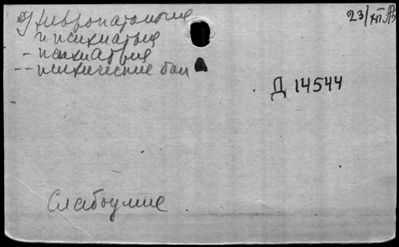 э) Невропатология 23/XII
и психиатрия
- психиатрия
-- психические бол
Д 14544
Слабоумие